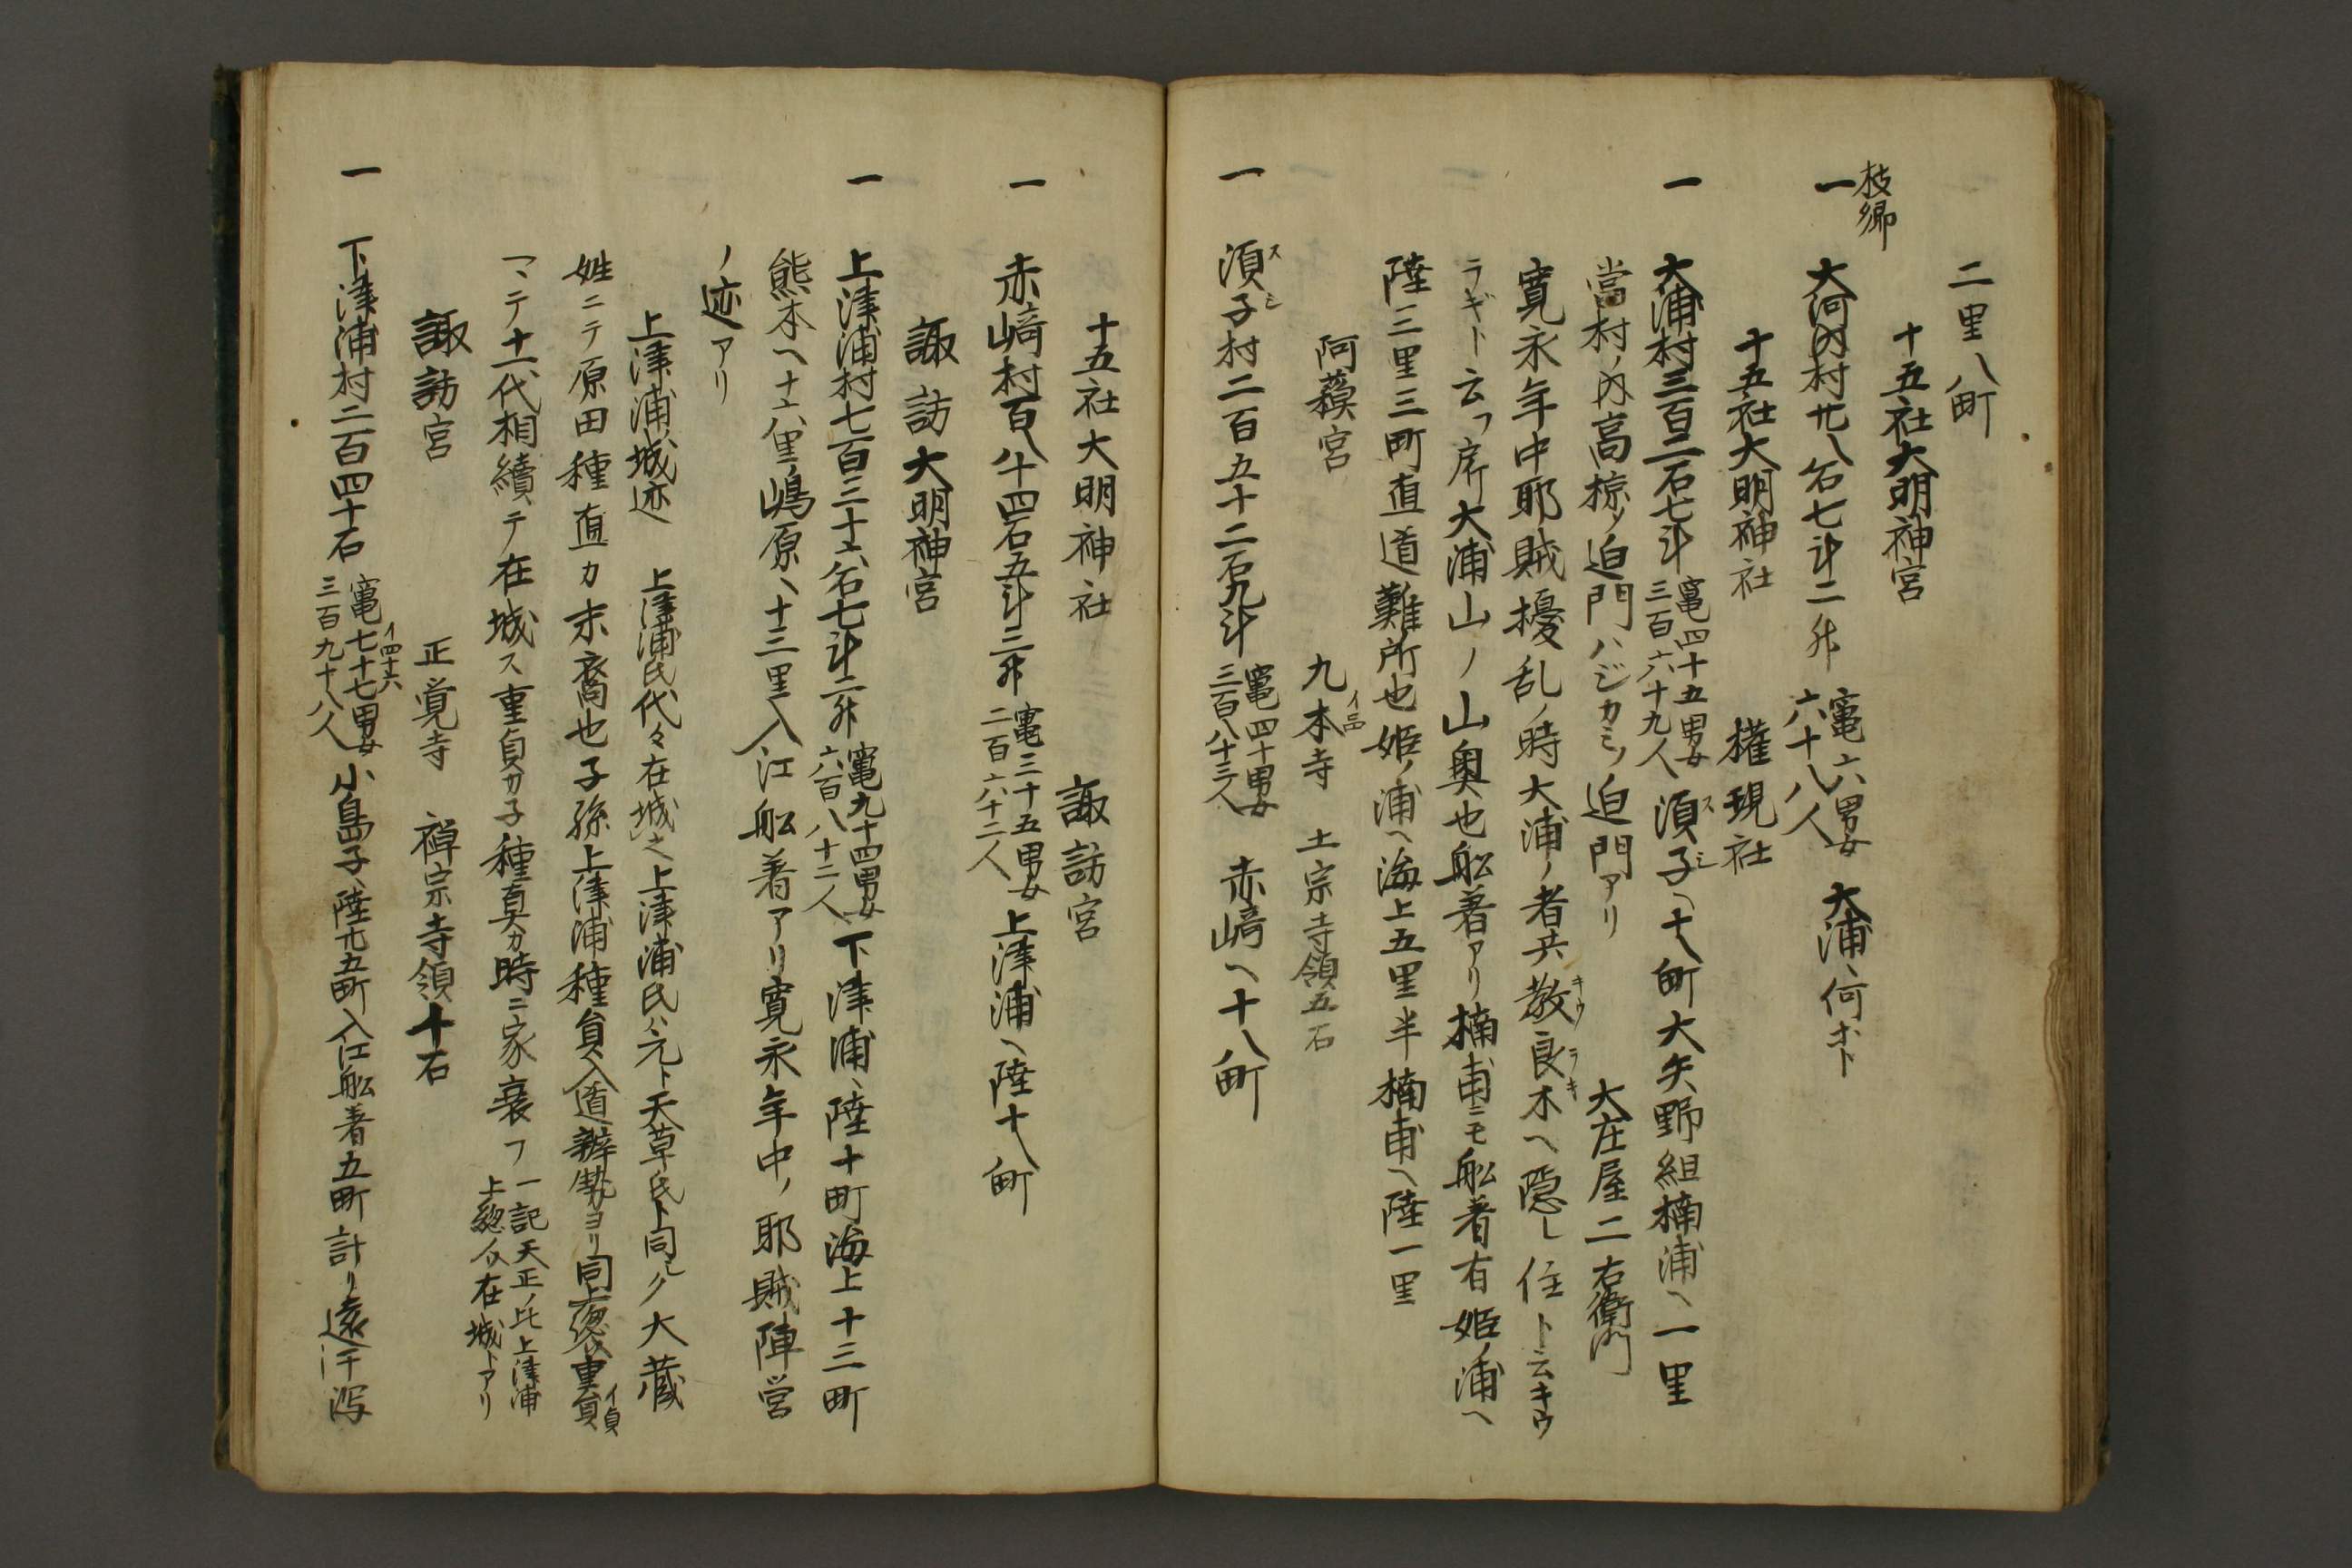 二里八町
十五社大明神宮
枝郷
一 大河内村廿八石七斗二升 竃六男女六十八人 大浦ヘ何ホト
十五社大明神社 権現社
一 大浦村三百二石七斗 竃四十五男女三百六十九人 須子ヘ十八町大矢野組楠浦ヘ一里
スシ
當村ノ内高椋ノ迫門ハジカミノ迫門アリ 大庄屋二右衛門
寛永年中耶賊擾乱ノ時大浦ノ者共教良木ヘ隠シ住ト云キウ
キウラキ
ラギト云フ所大浦山ノ山奥也舩着アリ楠甫ニモ舩着有姫ノ浦ヘ
陸三里三町直道難所也姫ノ浦ヘ海上五里半楠甫ヘ陸一里
阿蘓宮 九本寺 土宗寺領五石
一 須子村二百五十二石九斗 竃四十男女三百八十三人 赤﨑ヘ十八町
スシ
十五社大明神社 諏訪宮
一 赤﨑村百八十四石五斗三升 竃三十五男女二百六十二人 上津浦ヘ陸十八町
諏訪大明神宮
一 上津浦村七百三十六石七斗六升 竃九十四男女六百八十二人 下津浦ヘ陸十町海上十三町
熊本ヘ十六里嶋原ヘ十三里入江舩着アリ寛永年中ノ耶賊陣営
ノ迹アリ
上津浦城迹 上津浦氏代々在城之上津浦氏ハ元ト天草氏ト同シク大蔵
姓ニテ原田種直カ末裔也子孫上津浦種貞入道辨勢ヨリ同上総介重貞
イ貞
マテ十一代相續テ在城ス重貞カ子種真カ時ニ家衰フ 一記天正ノ比上津浦上総介在城トアリ
諏訪宮 正覚寺 禅宗寺領十石
一 下津浦村二百四十石 竃七十七男女三百九十八人 小島子ヘ陸廿五町入江舩着五町計リ遠干潟
イ四十六